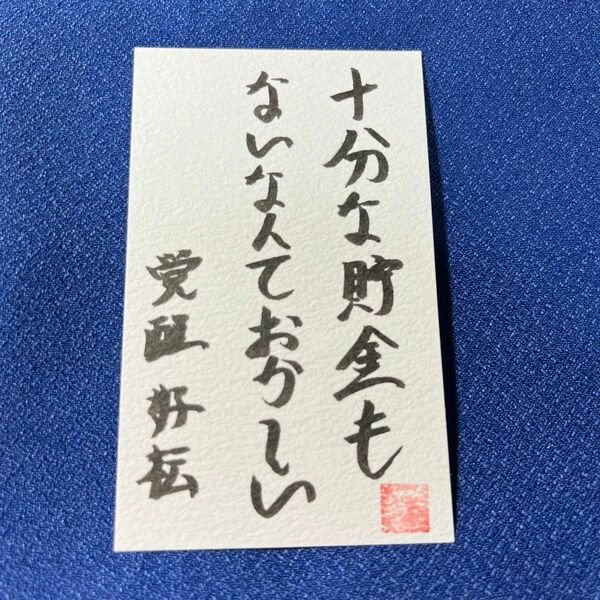 十分な貯金も
ないなんておかしい
覚醒 好転